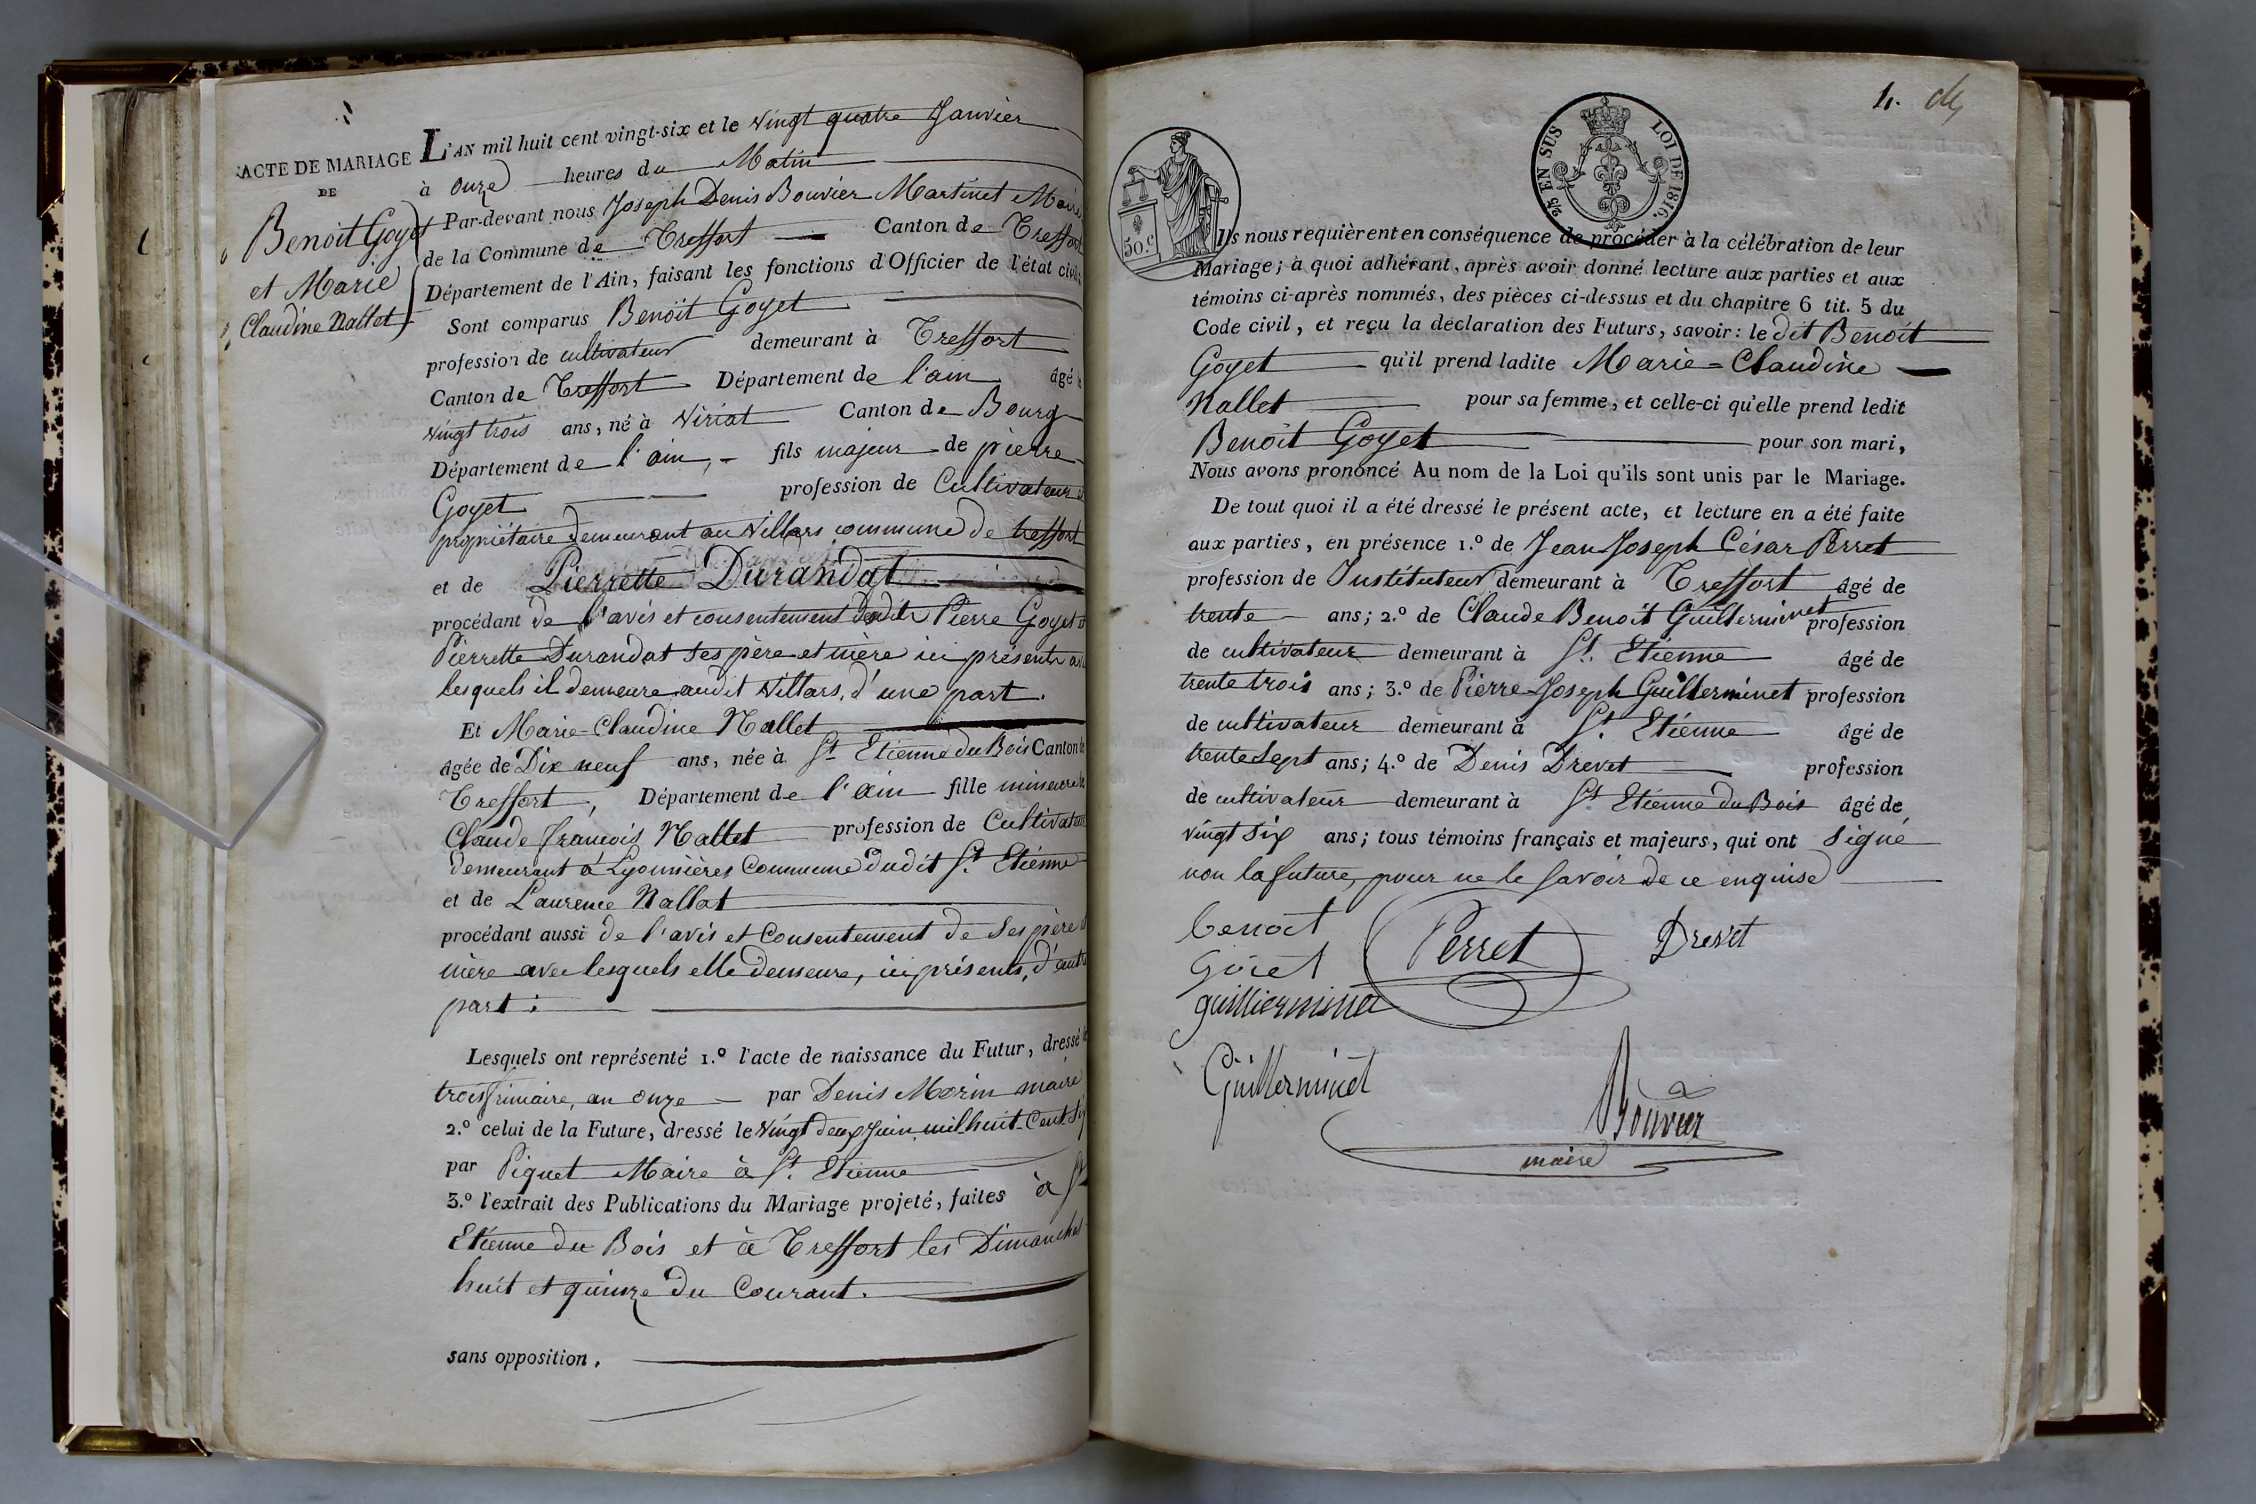 ACTE DE MARIAGE
DE
Benoit Goyet
et Marie
Claudine Nallet
L'AN mil huit cent vingt-six et le vingt quatre Janvier
à onze heures du Matin
Par-devant nous Joseph Denis Bouvier Martinet Maire
de la Commune de Treffort Canton de Treffort
Département de l'Ain, faisant les fonctions d'Officier de l'état civil
Sont comparus Benoît Goyet
profession de cultivateur demeurant à Treffort
Canton de Treffort Département de l'ain âgé de
vingt trois ans, né à Viriat Canton de Bourg
Département de l'ain, fils majeur de pierre
Goyet profession de Cultivateur
propriétaire demeurant au Villars commune de treffort
et de Pierrette Durandat
procédant de l'avis et consentement dudit Pierre Goyet et
Pierrette Durandat ses père et mère ici présents avec
lesquels il demeure audit Villars, d'une part.
Et Marie-Claudine Nallet
âgée de Dix neuf ans, née à St Etienne du Bois Canton de
Treffort, Département de l'ain fille mineure de
Claude françois Nallet profession de Cultivateur
demeurant à Lyonnières Commune dudit St. Etienne
et de Laurence Nallat
procédant aussi de l'avis et Consentement de ses père et
mère avec lesquels elle demeure, ici présents, d'autre
part.
Lesquels ont représenté 1.º l'acte de naissance du Futur, dressé le
trois frimaire, an onze par Denis Morin maire
2.º celui de la Future, dressé le vingt deux Juin mil huit Cent Six
par Piquet Maire à St. Etienne
3.º l'extrait des Publications du Mariage projeté, faites à St
Etienne du Bois et à Treffort les Dimanches
huit et quinze du Courant.
sans opposition.
1.
50.c
2/5 EN SUS LOI DE 1816.
Ils nous requièrent en conséquence de procéder à la célébration de leur
Mariage; à quoi adhérant, après avoir donné lecture aux parties et aux
témoins ci-après nommés, des pièces ci-dessus et du chapitre 6 tit. 5 du
Code civil, et reçu la déclaration des Futurs, savoir: le dit Benoit
Goyet qu'il prend ladite Marie-Claudine
Nallet pour sa femme, et celle-ci qu'elle prend ledit
Benoît Goyet pour son mari,
Nous avons prononcé Au nom de la Loi qu'ils sont unis par le Mariage.
De tout quoi il a été dressé le présent acte, et lecture en a été faite
aux parties, en présence 1.º de Jean Joseph César Perret
profession de Instituteur demeurant à Treffort âgé de
trente ans; 2.º de Claude Benoit Guillerminet profession
de cultivateur demeurant à St. Etienne âgé de
trente trois ans; 3.º de Pierre Joseph Guillerminet profession
de cultivateur demeurant à St. Etienne âgé de
trente Sept ans; 4.º de Denis Drevet profession
de cultivateur demeurant à St Etienne du Bois âgé de
vingt six ans; tous témoins français et majeurs, qui ont signé
non la future, pour ne le savoir de ce enquise
benoit
Goiet
Perret
Drevet
guillierminet
Guillerminet
Bouvier
maire